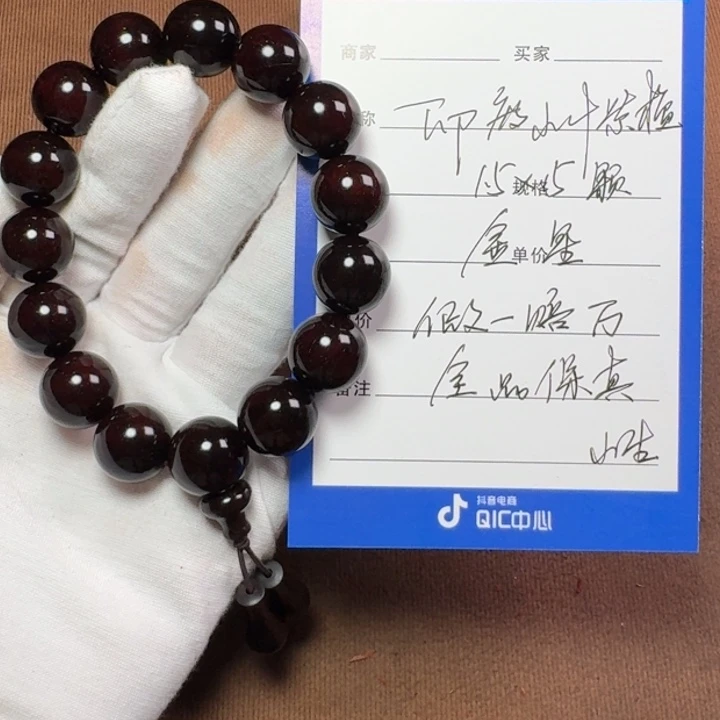 商家 买家
称 印度小叶紫檀
1.5 规格 5 颗
金 单价 星
价 假一赔万
备注 全品保真
小生
抖音电商
QIC中心